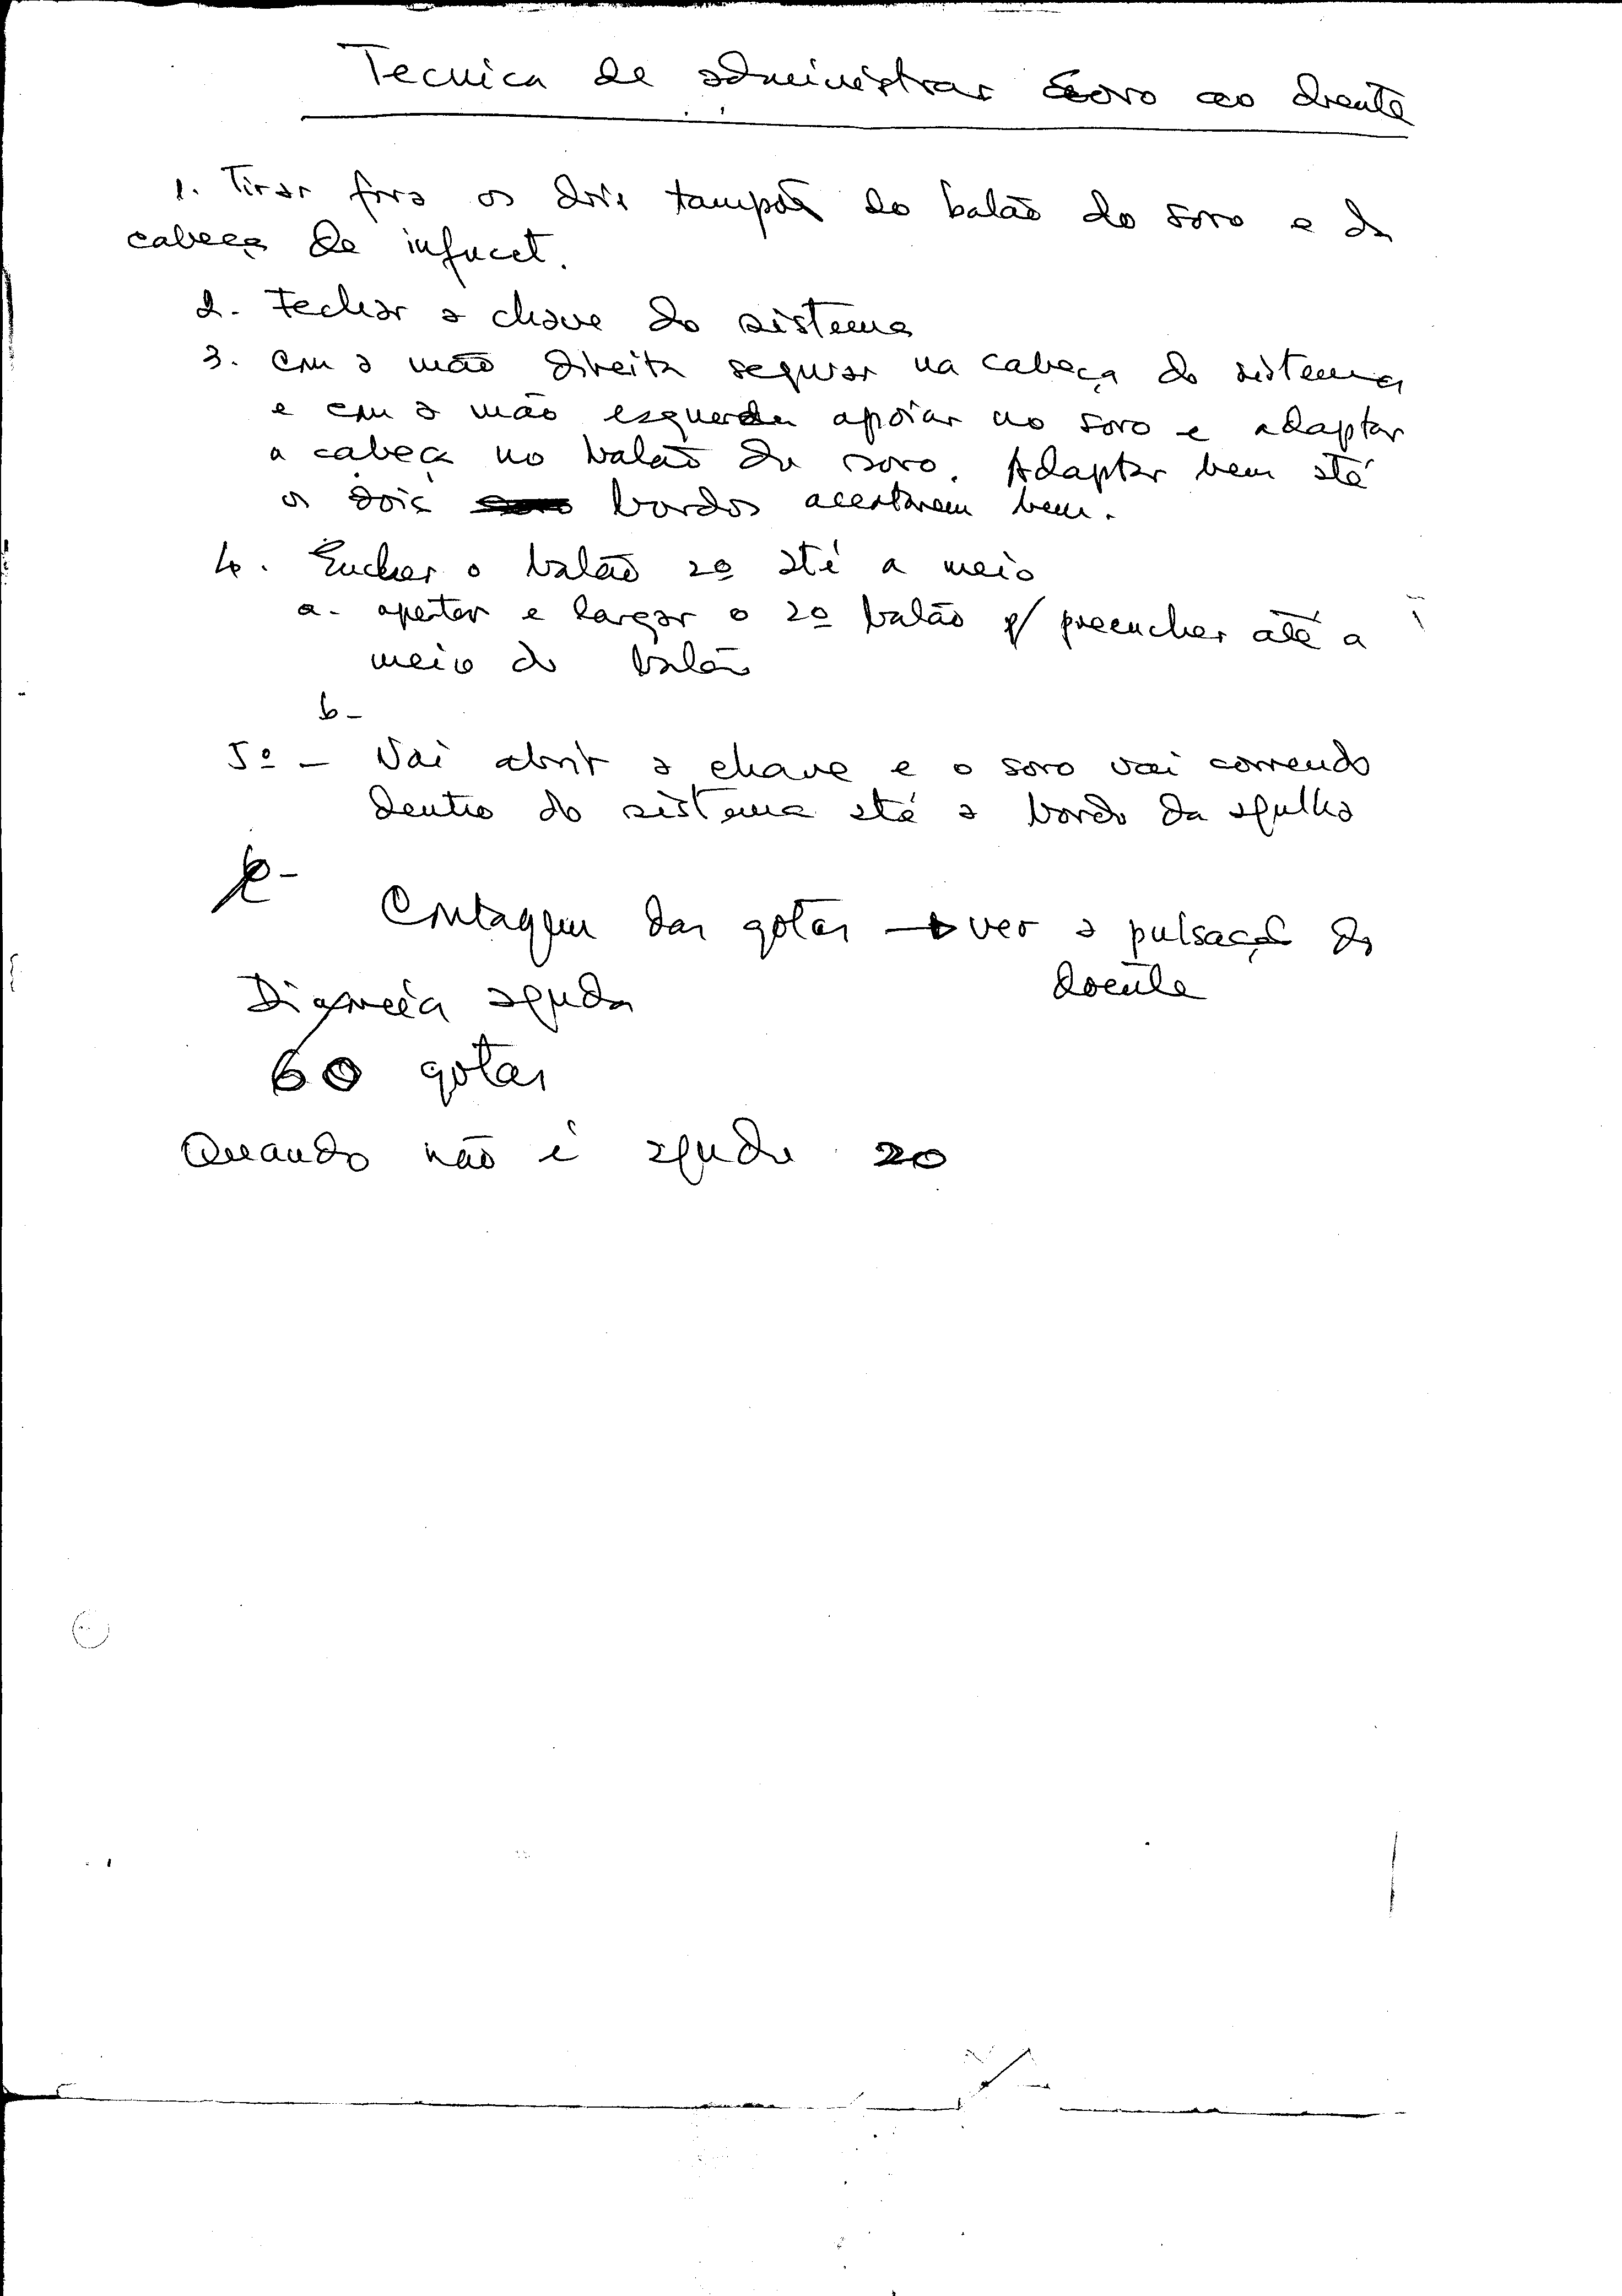 Tecnica de administrar soro ao doente
1. Tirar fora os dois tampões do balão do soro e da
cabeça de infucet.
2. Fechar a chave do sistema
3. Com a mão direita segurar na cabeça do sistema
e com a mão esquerda apoiar no soro e adaptar
a cabeça no balão do soro. Adaptar bem até
os dois bordos acertarem bem.
4. Encher o balão 2º até a meio
a- apertar e largar o 2º balão p/ preencher até a
meio do balão
b-
5º - Vai abrir a chave e o soro vai correndo
dentro do sistema até a bordo da agulha
Contagem das gotas → ver a pulsação do
doente
Diarreia aguda
60 gotas
Quando não é aguda 20